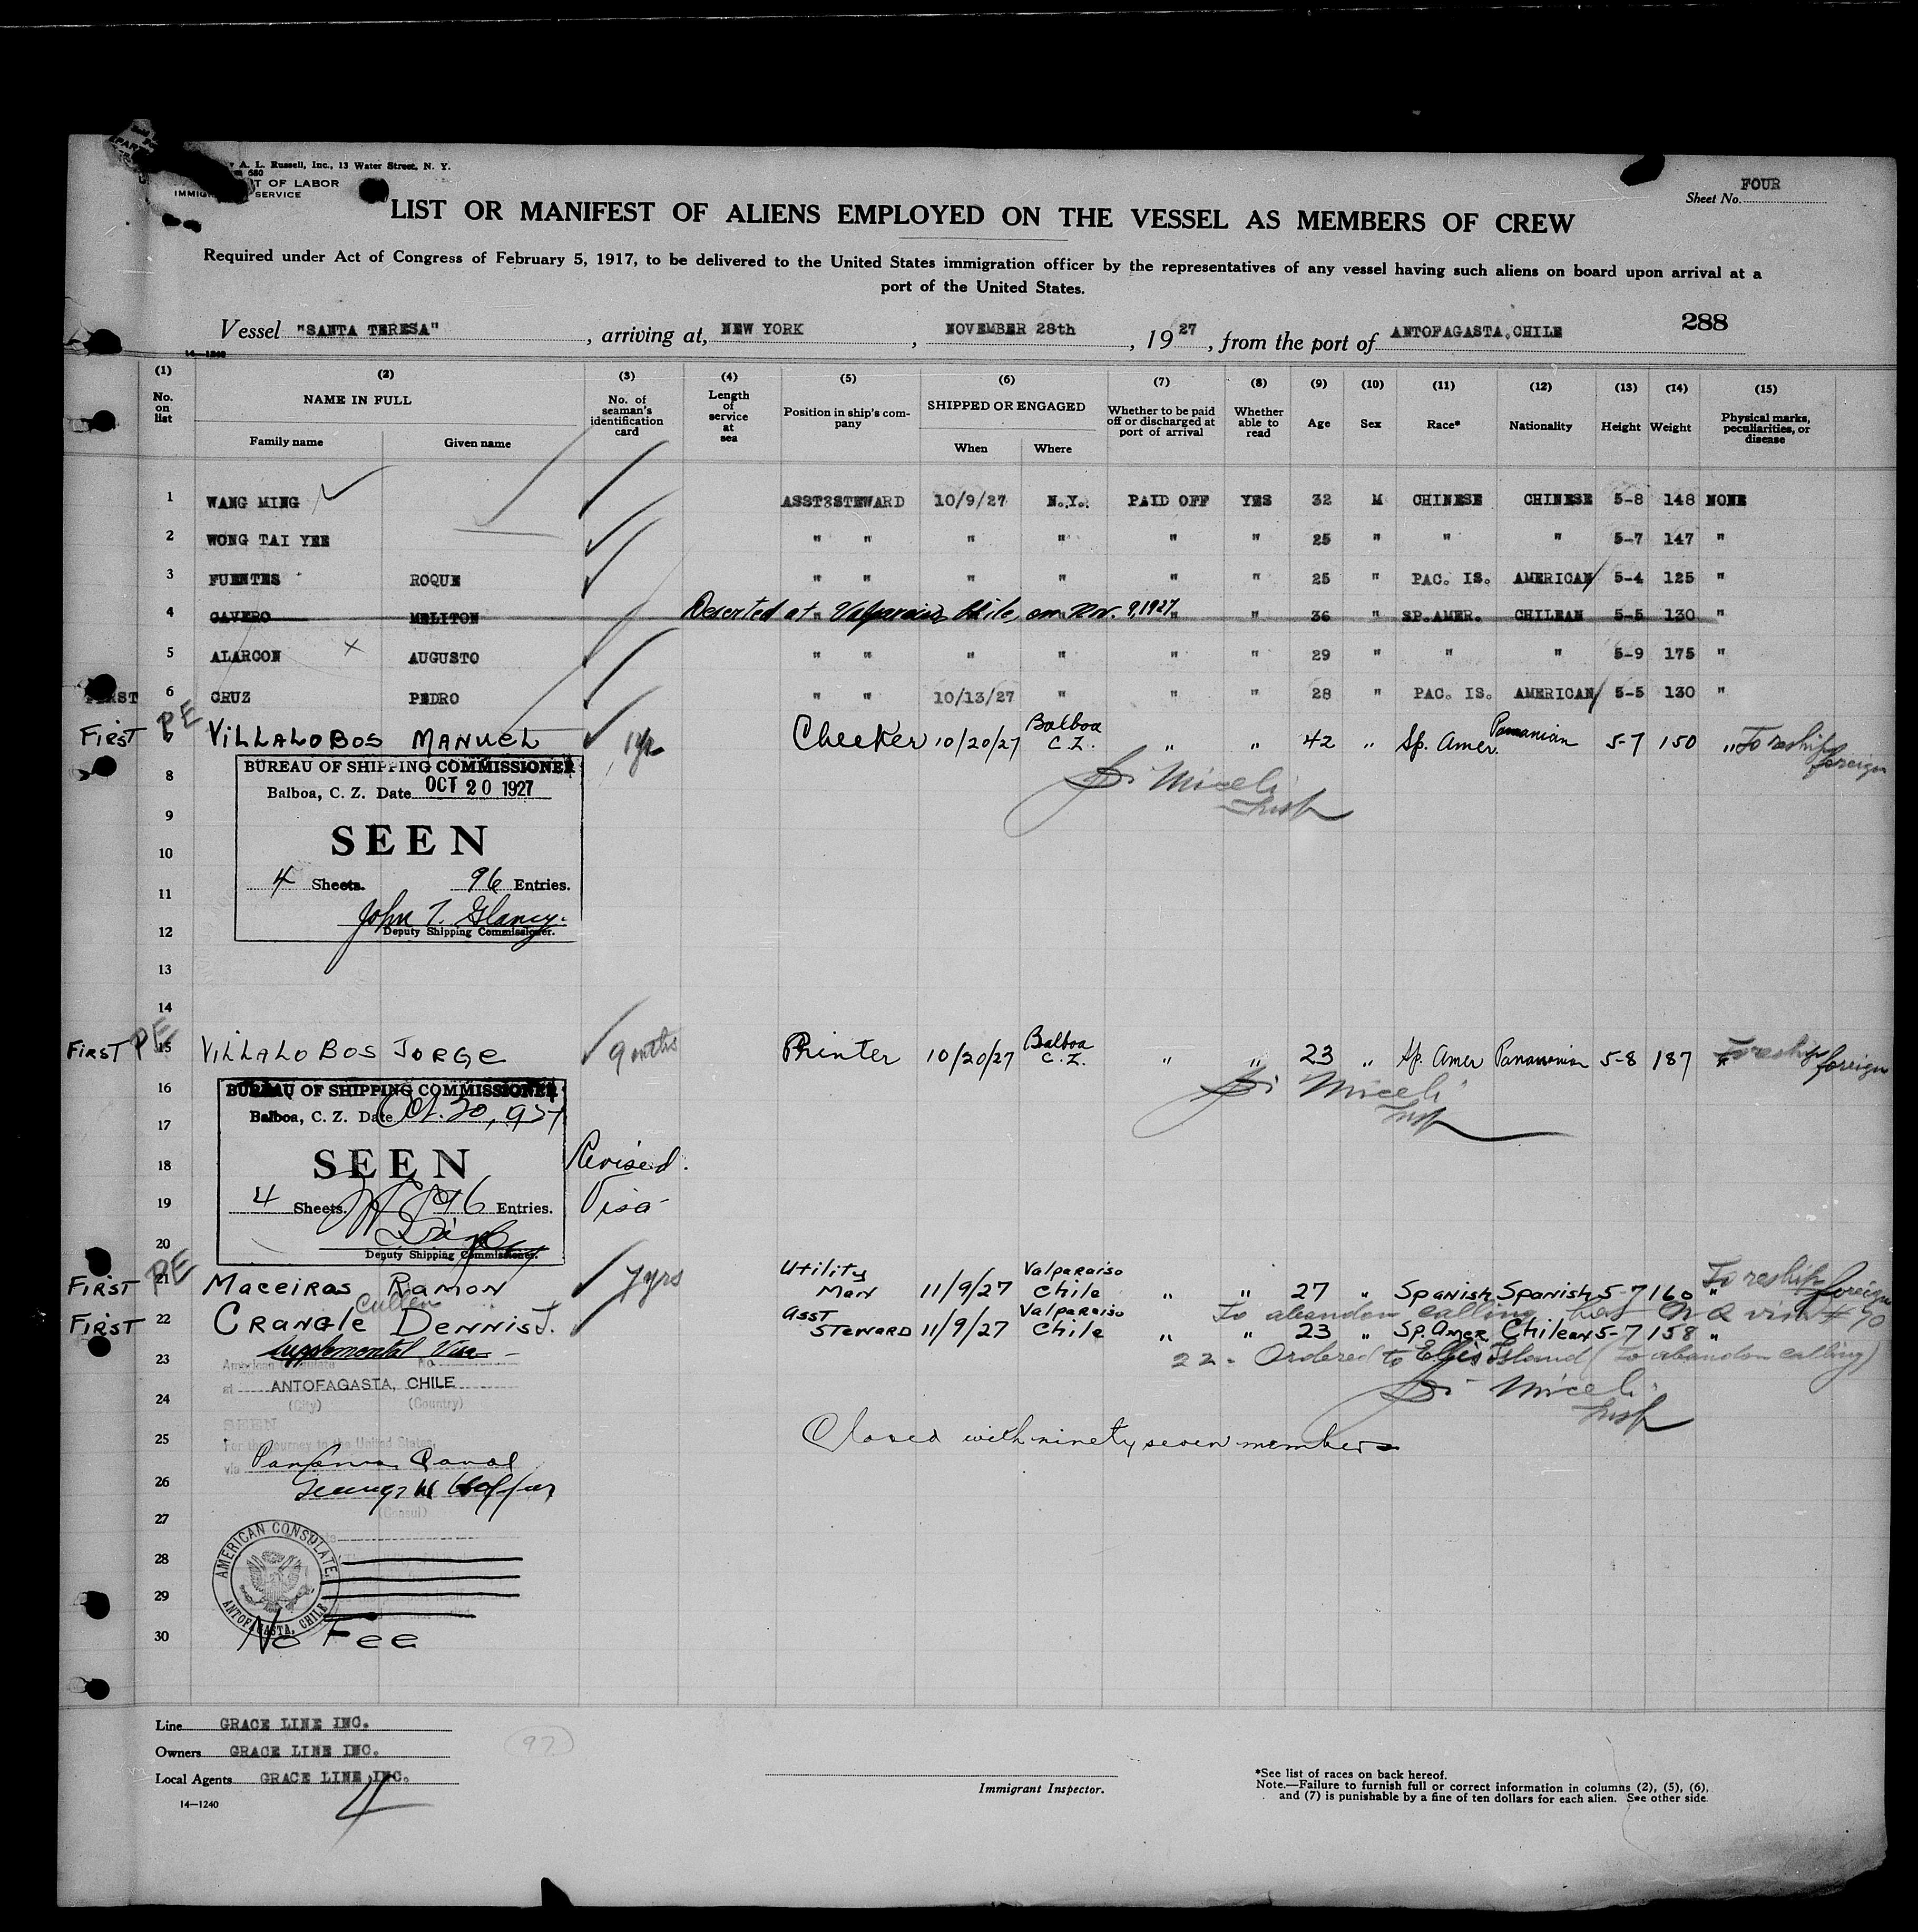 A. L. Russell, Inc., 13 Water Street, N. Y.
680
T OF LABOR
SERVICE
Sheet No. FOUR
LIST OR MANIFEST OF ALIENS EMPLOYED ON THE VESSEL AS MEMBERS OF CREW
Required under Act of Congress of February 5, 1917, to be delivered to the United States immigration officer by the representatives of any vessel having such aliens on board upon arrival at a
port of the United States.
288
Vessel "SANTA TERESA", arriving at, NEW YORK, NOVEMBER 28th, 1927, from the port of ANTOFAGASTA, CHILE
14—1240
(1) (2) (3) (4) (5) (6) (7) (8) (9) (10) (11) (12) (13) (14) (15)
No. on list NAME IN FULL Family name Given name No. of seaman's identification card Length of service at sea Position in ship's company SHIPPED OR ENGAGED When Where Whether to be paid off or discharged at port of arrival Whether able to read Age Sex Race* Nationality Height Weight Physical marks, peculiarities, or disease
1 WANG MING ASST STEWARD 10/9/27 N.Y. PAID OFF YES 32 M CHINESE CHINESE 5-8 148 NONE
2 WONG TAI YEE " " " " " " 25 " " " 5-7 147 "
3 FUENTES ROQUE " " " " " " 25 " PAC. IS. AMERICAN 5-4 125 "
4 CAVERO MELITON Deserted at Valparaiso Chile, on Nov. 9, 1927 " " 36 " SP.AMER. CHILEAN 5-5 130 "
5 ALARCON X AUGUSTO " " " " " " 29 " " " 5-9 175 "
FIRST 6 CRUZ PEDRO " " 10/13/27 " " " 28 " PAC. IS. AMERICAN 5-5 130 "
First PE VILLALOBOS MANUEL 1yr Checker 10/20/27 Balboa C.Z. " " 42 " Sp. Amer. Panamanian 5-7 150 " To reship foreign
Miceli
Insp
8
BUREAU OF SHIPPING COMMISSIONER
Balboa, C. Z. Date OCT 20 1927
9
SEEN
10
11
4 Sheets. 96 Entries.
John T. Glancy.
12
Deputy Shipping Commissioner.
13
14
FIRST PE 15 VILLALOBOS JORGE 9 mths Printer 10/20/27 Balboa C.Z. " " 23 " Sp. Amer Panamanian 5-8 187 " To reship foreign
Miceli
Insp
16
BUREAU OF SHIPPING COMMISSIONER
Balboa, C. Z. Date Oct. 20, 927
17
18
SEEN
Revised
Visa
19
4 Sheets. 96 Entries.
20
Deputy Shipping Commissioner.
FIRST PE 21 MACEIRAS RAMON 7yrs Utility Man 11/9/27 Valparaiso Chile " " 27 " Spanish Spanish 5-7 160 " To reship foreign
Cullen
To abandon calling
FIRST 22 CRANGLE DENNIS J. Asst Steward 11/9/27 Valparaiso Chile " " 23 " Sp. Amer Chilean 5-7 158 "
Supplemental Visa
22 - Ordered to Ellis Island (to abandon calling)
Miceli
Insp
23
American Consulate No.
at ANTOFAGASTA, CHILE
24
(City) (Country)
SEEN
25
For the journey to the United States,
via Panama Canal
Closed with ninety seven members
26
(Consul)
27
28
29
30
AMERICAN CONSULATE
ANTOFAGASTA, CHILE
No Fee
Line GRACE LINE INC.
Owners GRACE LINE INC.
Local Agents GRACE LINE INC.
14—1240
(97)
4
Immigrant Inspector.
*See list of races on back hereof.
Note.—Failure to furnish full or correct information in columns (2), (5), (6),
and (7) is punishable by a fine of ten dollars for each alien. See other side.